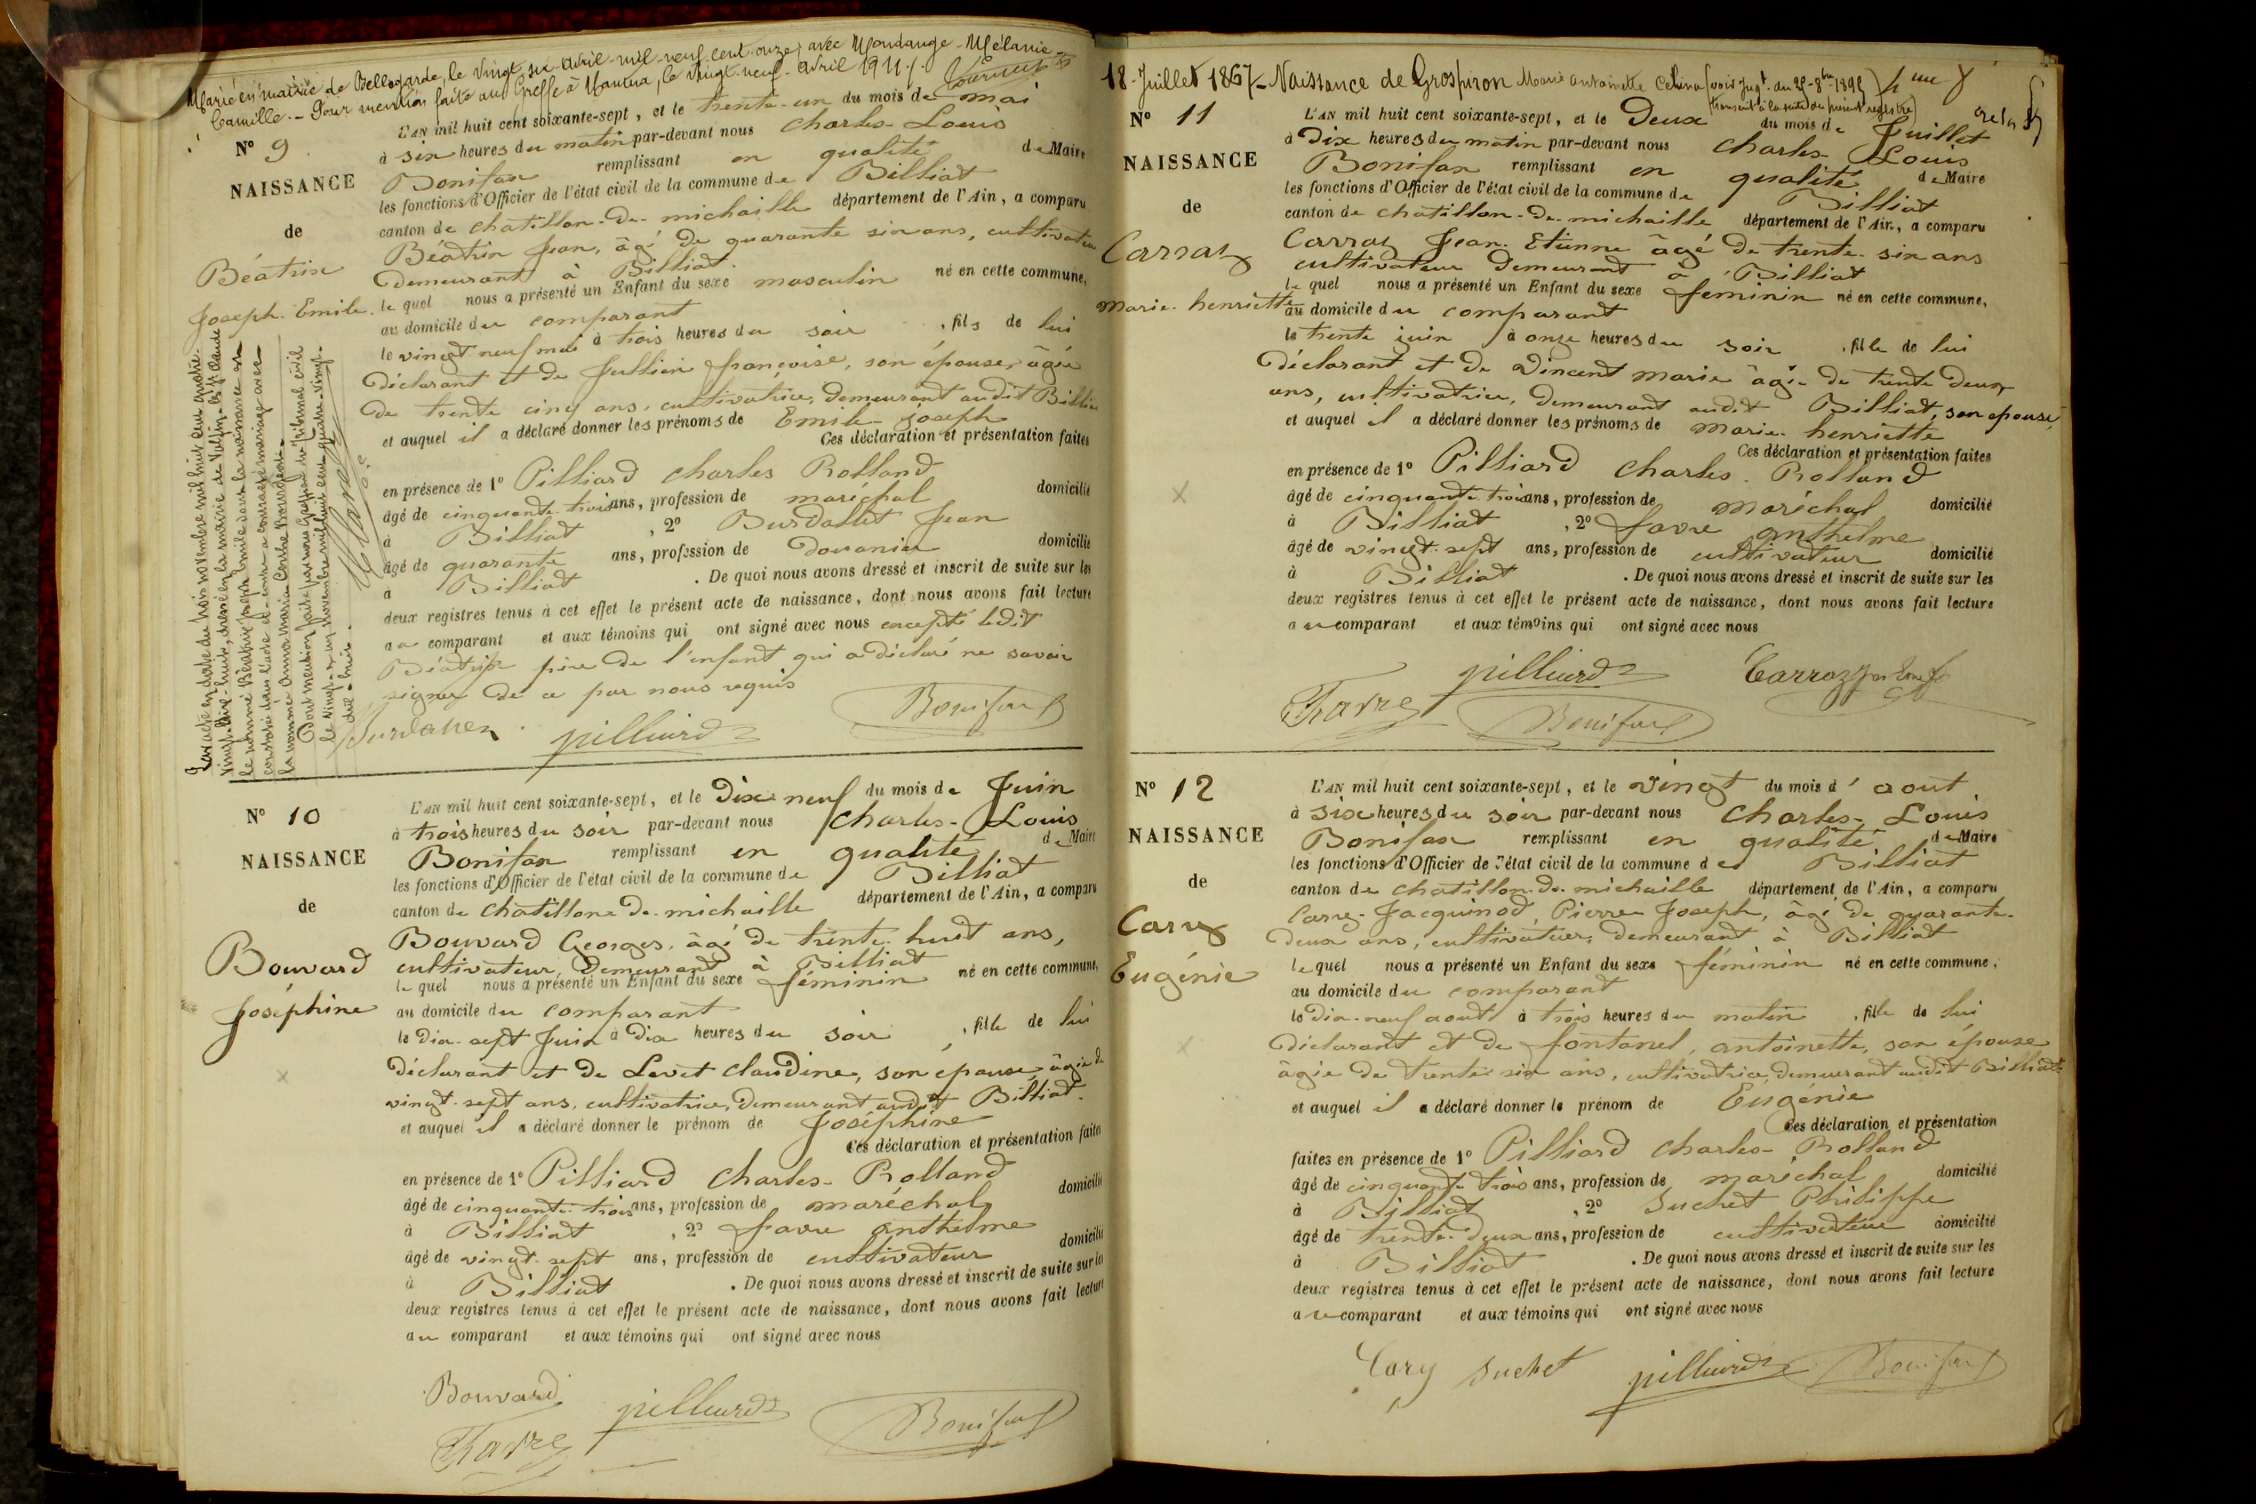 Marié en mairie de Bellegarde, le vingt six avril mil neuf cent onze, avec Mondange Mélanie
Camille. - Pour mention faite au Greffe à Nantua, le vingt-neuf avril 1911.
N° 9
NAISSANCE
de
Béatrix
Joseph. Emile.
L'AN mil huit cent soixante-sept, et le trente-un du mois de mai
à six heures du matin par-devant nous Charles Louis
Bonifax remplissant en qualité de Maire
les fonctions d'Officier de l'état civil de la commune de Billiat
canton de chatillon-de-michaille département de l'Ain, a comparu
Béatrix Jean, âgé de quarante six ans, cultivateur
demeurant à Billiat.
lequel nous a présenté un Enfant du sexe masculin né en cette commune,
au domicile du comparant
le vingt neuf mai à trois heures du soir, fils de lui
déclarant et de Jullien françoise, son épouse, âgée
de trente cinq ans, cultivatrice, demeurant audit Billiat
et auquel il a déclaré donner les prénoms de Emile Joseph
Ces déclaration et présentation faites
en présence de 1° Pilliard Charles Rolland
âgé de cinquante trois ans, profession de maréchal domicilié
à Billiat, 2° Burdallet Jean
âgé de quarante ans, profession de douanier domicilié
à Billiat. De quoi nous avons dressé et inscrit de suite sur les
deux registres tenus à cet effet le présent acte de naissance, dont nous avons fait lecture
au comparant et aux témoins qui ont signé avec nous excepté ledit
Béatrix père de l'enfant qui a déclaré ne savoir
signer de ce par nous requis
pilliard Bonifax
Par acte en date du trois novembre mil huit cent quatre-
vingt-dix-huit, dressé en la mairie de St Claude
le nommé Béatrix Joseph Emile dont la naissance est
constatée dans l'acte ci-contre a contracté mariage avec
la nommée Anna Maria
Pour mention faite par nous Greffier du Tribunal civil
le vingt-un novembre mil huit cent quatre-vingt-
dix-huit.
N° 10
NAISSANCE
de
Bouvard
Joséphine
L'AN mil huit cent soixante-sept, et le Dix neuf du mois de Juin
à trois heures du soir par-devant nous Charles-Louis
Bonifax remplissant en qualité de Maire
les fonctions d'Officier de l'état civil de la commune de Billiat
canton de chatillone-de-michaille département de l'Ain, a comparu
Bouvard Georges, âgé de trente huit ans,
cultivateur, demeurant à Billiat
lequel nous a présenté un Enfant du sexe féminin né en cette commune,
au domicile du comparant
le dix-sept Juin à dix heures du soir, fille de lui
déclarant et de Levet Claudine, son épouse, âgée de
vingt-sept ans, cultivatrice, demeurant audit Billiat.
et auquel il a déclaré donner le prénom de Joséphine
Ces déclaration et présentation faites
en présence de 1° Pilliard Charles-Rolland
âgé de cinquante-trois ans, profession de maréchal domicilié
à Billiat, 2° favre anthelme
âgé de vingt-sept ans, profession de cultivateur domicilié
à Billiat. De quoi nous avons dressé et inscrit de suite sur les
deux registres tenus à cet effet le présent acte de naissance, dont nous avons fait lecture
au comparant et aux témoins qui ont signé avec nous
Bouvard pilliard Bonifax
Favre
18 Juillet 1867 - Naissance de Grospiron Marie Antoinette Célina (voir jugt du 25-8bre-1895
transcrit à la suite du présent registre)
N° 11
NAISSANCE
de
Carraz
Marie. henriette
L'AN mil huit cent soixante-sept, et le Deux du mois de Juillet
à Dix heures du matin par-devant nous Charles Louis
Bonifax remplissant en qualité de Maire
les fonctions d'Officier de l'état civil de la commune de Billiat
canton de chatillon-de-michaille département de l'Ain, a comparu
Carraz Jean-Etienne âgé de trente-six ans
cultivateur demeurant à Billiat
lequel nous a présenté un Enfant du sexe féminin né en cette commune,
au domicile du comparant
le trente juin à onze heures du soir, fille de lui
déclarant et de Vincent marie âgée de trente deux
ans, cultivatrice, demeurant audit Billiat, son épouse,
et auquel il a déclaré donner les prénoms de Marie-henriette
Ces déclaration et présentation faites
en présence de 1° Pilliard Charles-Rolland
âgé de cinquante-trois ans, profession de maréchal domicilié
à Billiat, 2° favre anthelme
âgé de vingt-sept ans, profession de cultivateur domicilié
à Billiat. De quoi nous avons dressé et inscrit de suite sur les
deux registres tenus à cet effet le présent acte de naissance, dont nous avons fait lecture
au comparant et aux témoins qui ont signé avec nous
pilliard Carraz
Favre Bonifax
N° 12
NAISSANCE
de
Carry
Eugénie
L'AN mil huit cent soixante-sept, et le vingt du mois d'aout
à six heures du soir par-devant nous Charles-Louis
Bonifax remplissant en qualité de Maire
les fonctions d'Officier de l'état civil de la commune de Billiat
canton de chatillon-de-michaille département de l'Ain, a comparu
Carry-Jacquinod, Pierre Joseph, âgé de quarante-
deux ans, cultivateur, demeurant à Billiat
lequel nous a présenté un Enfant du sexe féminin né en cette commune,
au domicile du comparant
le dix-neuf aout à trois heures du matin, fille de lui
déclarant et de fontanel, antoinette, son épouse
âgée de trente-six ans, cultivatrice, demeurant audit Billiat
et auquel il a déclaré donner le prénom de Eugénie
Ces déclaration et présentation
faites en présence de 1° Pilliard Charles-Rolland
âgé de cinquante-trois ans, profession de maréchal domicilié
à Billiat, 2° Suchet Philippe
âgé de trente-deux ans, profession de cultivateur domicilié
à Billiat. De quoi nous avons dressé et inscrit de suite sur les
deux registres tenus à cet effet le présent acte de naissance, dont nous avons fait lecture
au comparant et aux témoins qui ont signé avec nous
Cary Suchet pilliard Bonifax